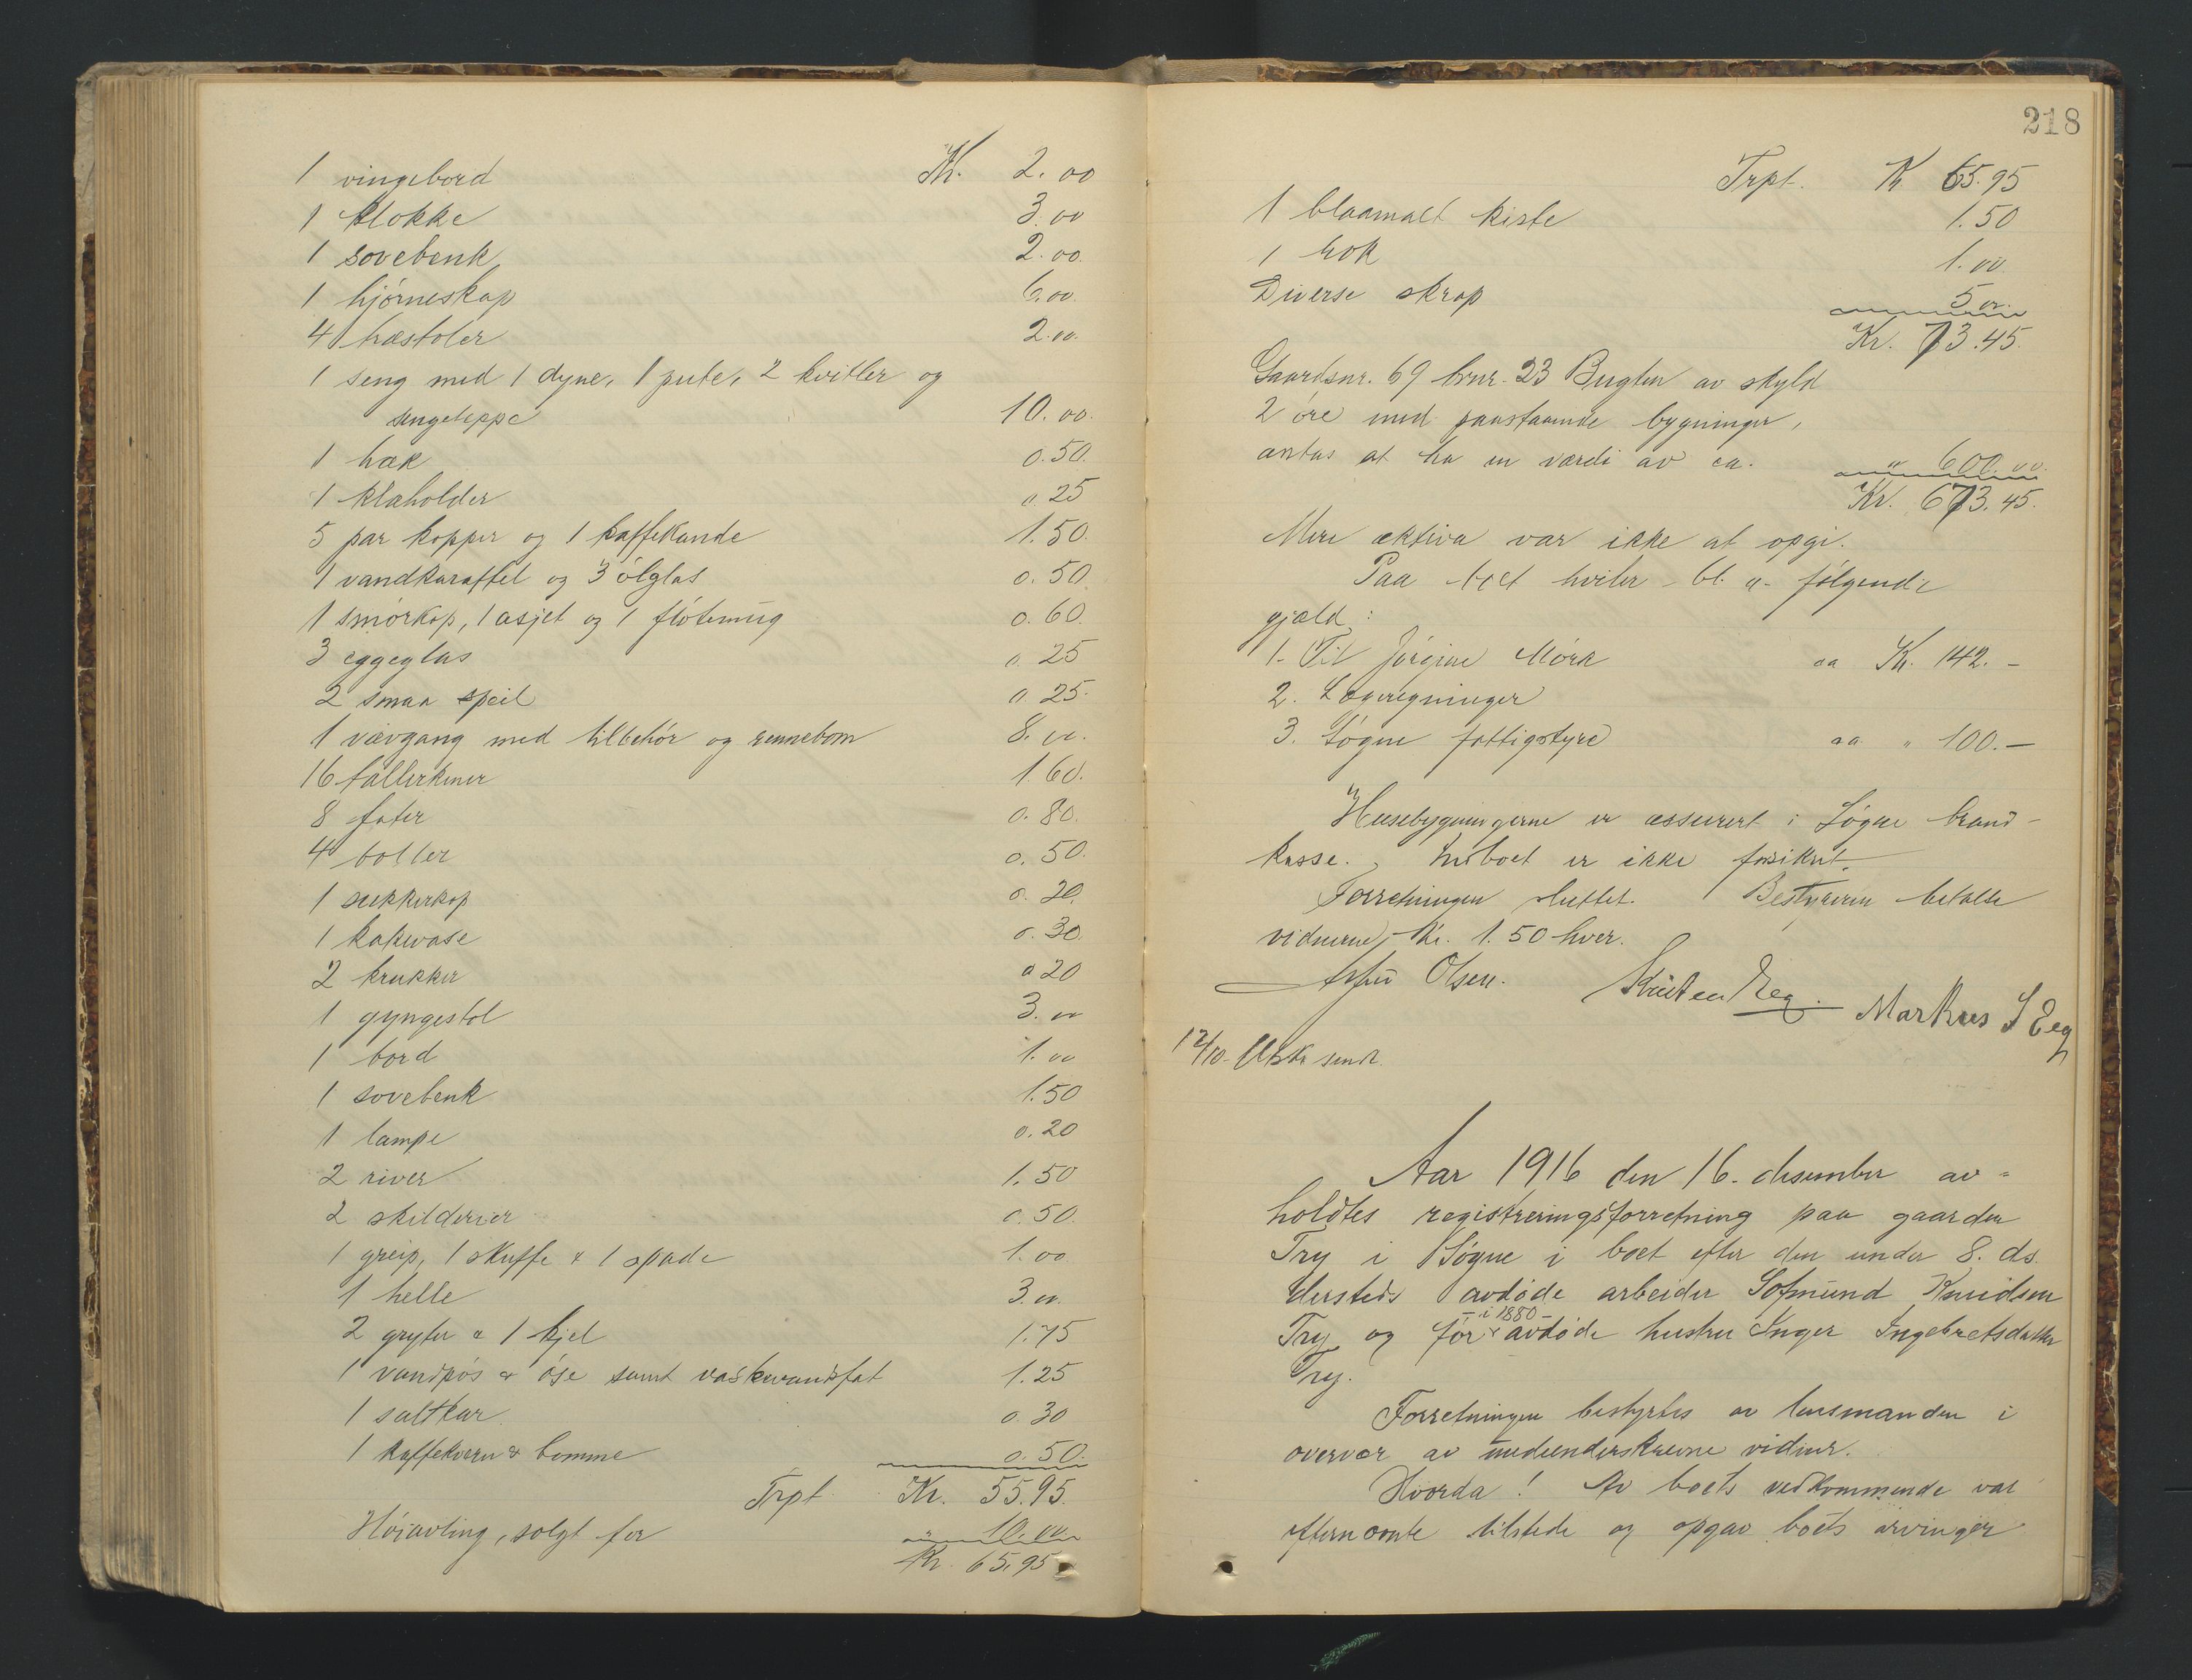 1 vingebord Kr. 2.00
1 klokke 3.00
1 sovebenk 2.00
1 hjørneskap 6.00
4 træstoler 2.00
1 seng med 1 dyne, 1 pute, 2 kvitler og
sengeteppe 10.00
1 hæk 0.50
1 klæholder 0.25
5 par kopper og 1 kaffekande 1.50
1 vandkaraffel og 3 ølglas 0.50
1 smørkop, 1 asjet og 1 fløtemug 0.60
3 eggeglas 0.25
2 smaa speil 0.25
1 vævgang med tilbehør og rennebom 8.00
16 tallerkener 1.60
8 fater 0.80
4 boller 0.50
1 sukkerkop 0.20
1 kakevase 0.30
2 krukker 0.20
1 gyngestol 3.00
1 bord 1.00
1 sovebenk 1.50
1 lampe 0.20
2 river 1.50
2 skilderier 0.50
1 greip, 1 skuffe & 1 spade 1.00
1 helle 3.00
2 gryter & 1 kjel 1.75
1 vandpøs & øse samt vaskevandsfat 1.25
1 saltkar 0.30
1 kaffekvern & bomme 0.50
Trpt Kr. 55.95
Høiavling, solgt for " 10.00
Kr. 65.95
218
Trpt. Kr 65.95
1 blaamalt kiste 1.50
1 rok 1.00
Diverse skrap 5.00
Kr. 73.45
Gaardsnr. 69 brnr. 23 Bugten av skyld
2 øre med paastaaende bygninger,
antas at ha en værdi av ca. " 600.00
Kr. 673.45
Mere aktiva var ikke at opgi.
Paa boet hviler bl. a. følgende
gjæld:
1. Til Jørgine Mørk ca Kr. 142.-
2. Lægeregninger
3. Søgne fattigstyre ca " 100.-
Husebygningerne er assurert i Søgne brand-
kasse. Indboet er ikke forsikret
Forretningen sluttet. Bestyreren betalte
vidnerne Kr. 1.50 hver.
Olsen. Kristen Eeg. Markus S Eeg
12/10. Utskr sendt.
Aar 1916 den 16. desember av-
holdtes registreringsforretning paa gaarden
Try i Søgne i boet efter den under 8. ds.
dersteds avdøde arbeider Sofmund Knudsen
- i 1880 -
Try og før avdøde hustru Inger Ingebretsdatter
Try.
Forretningen bestyrtes av lensmanden i
overvær av medunderskrevne vidner.
Hvorda! Av boets vedkommende var
efternævnte tilstede og opgav boets arvinger